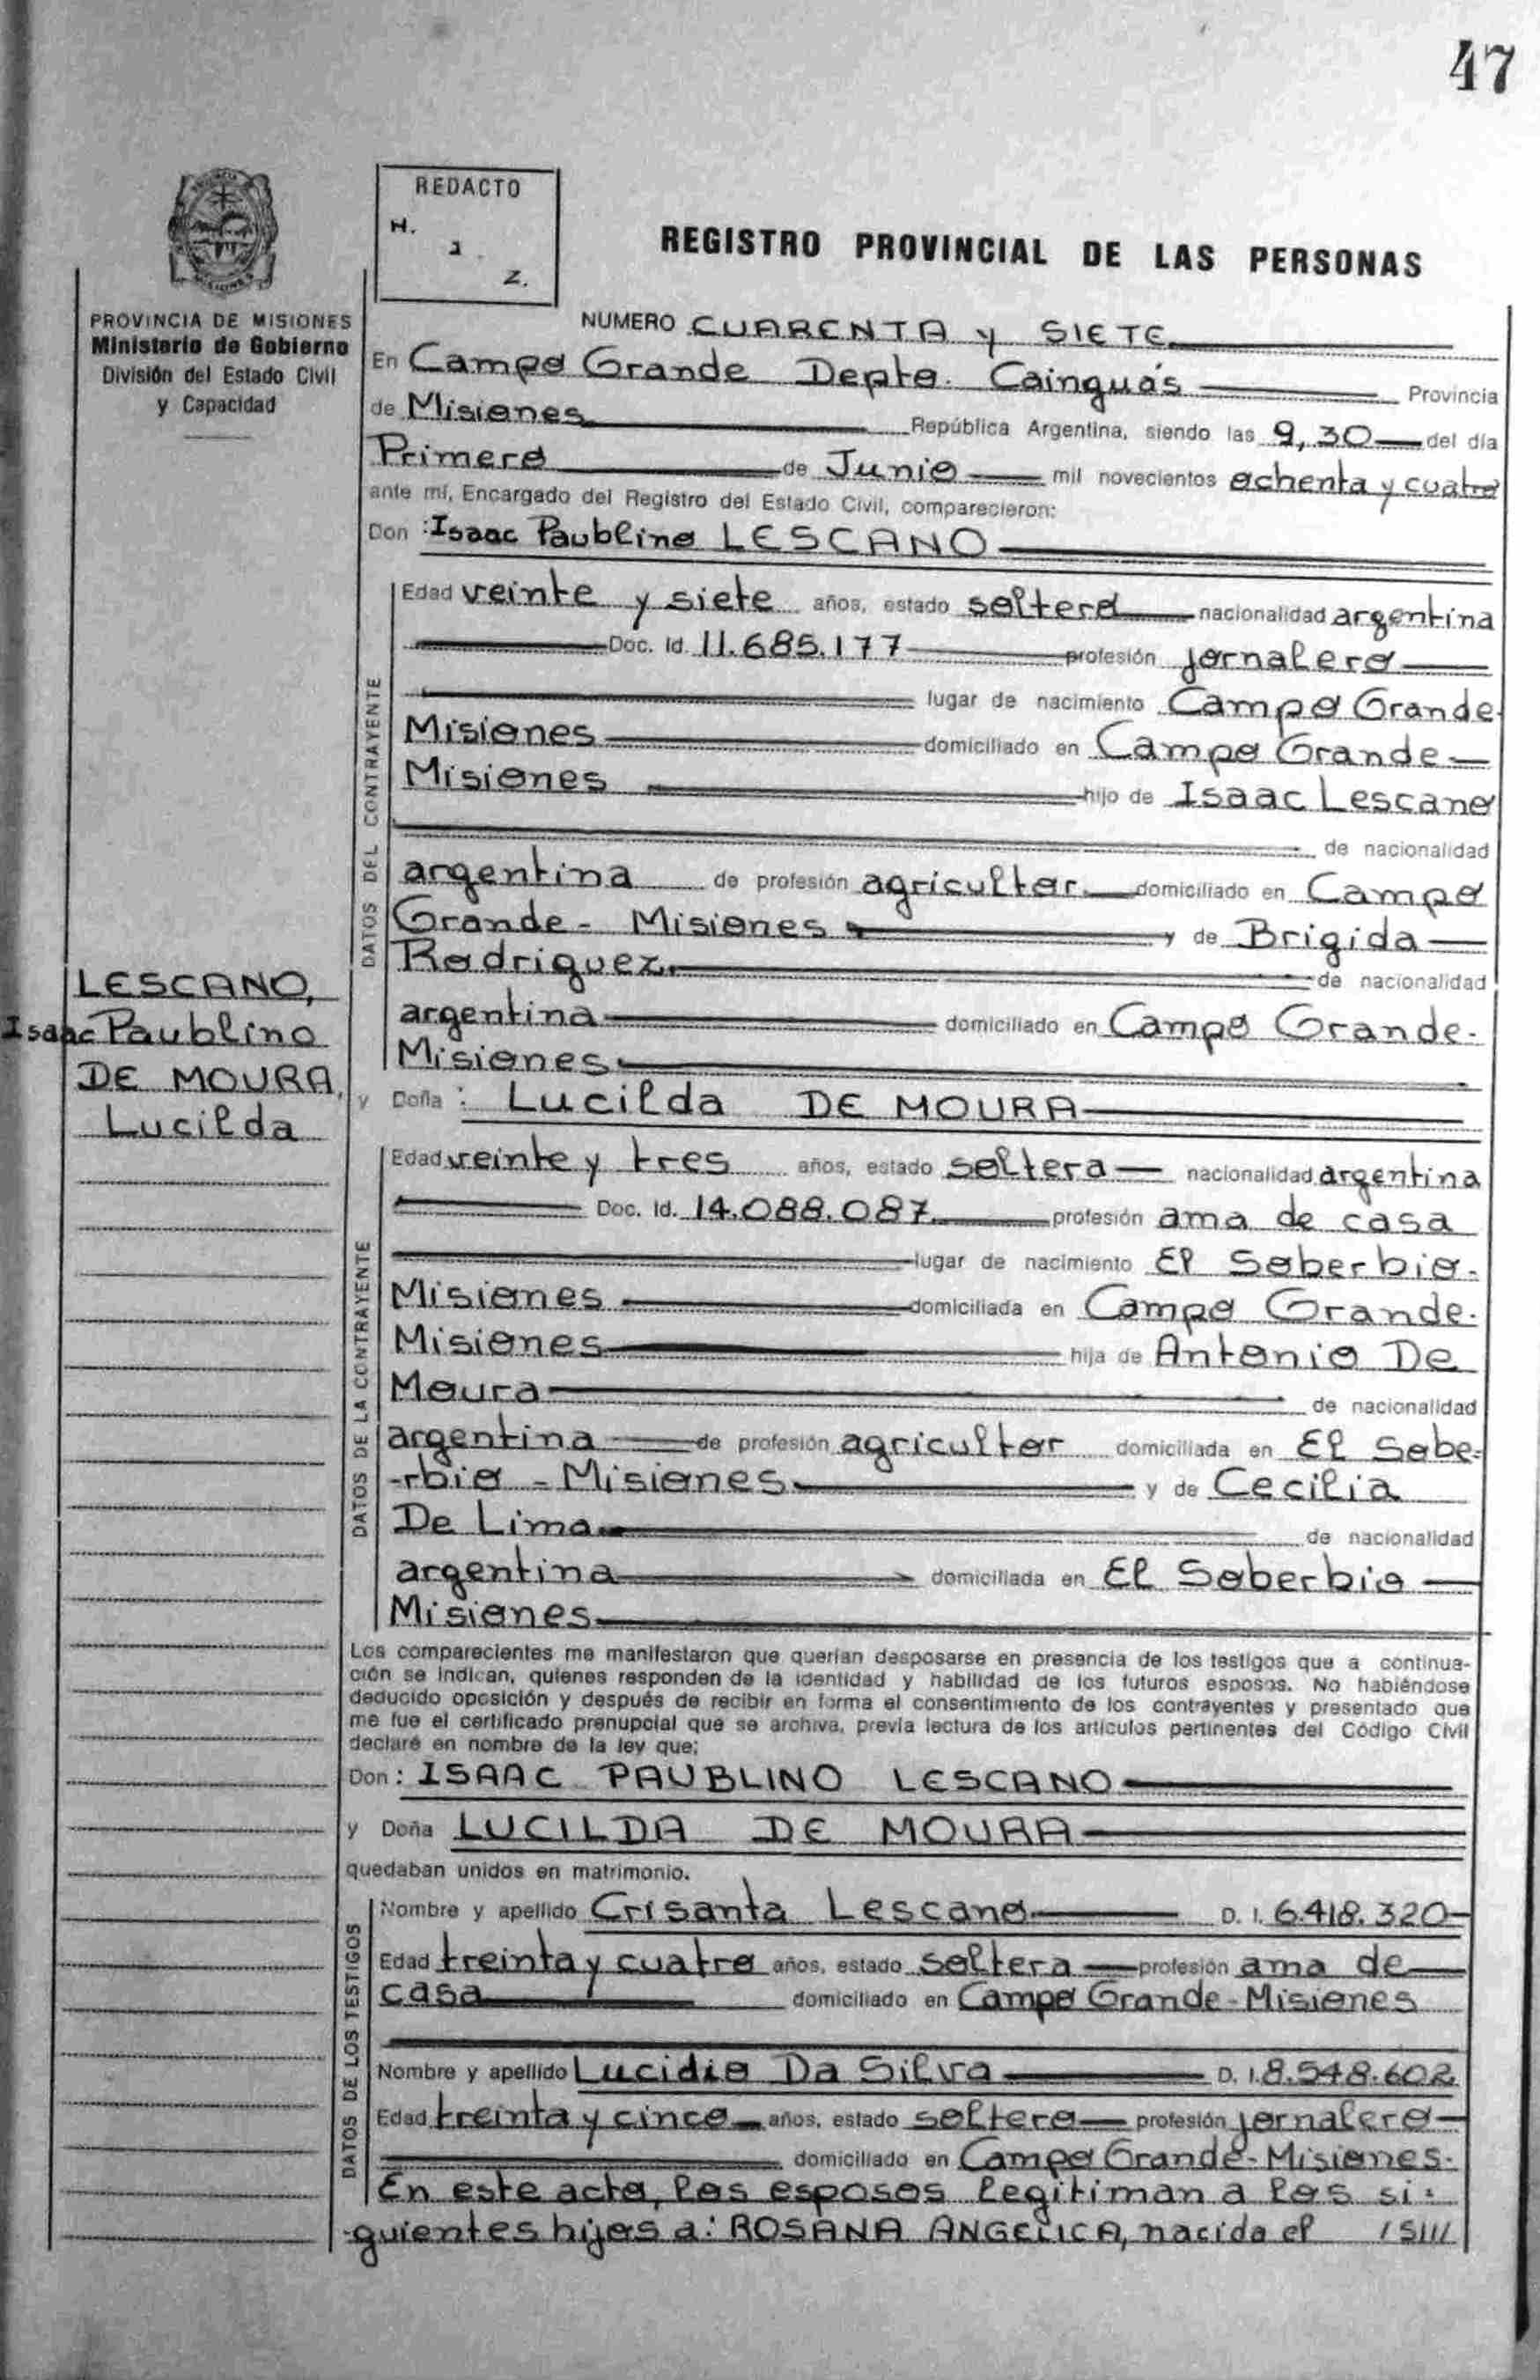 47
REDACTO
H.
J.
Z.
REGISTRO PROVINCIAL DE LAS PERSONAS
PROVINCIA DE MISIONES
Ministerio de Gobierno
División del Estado Civil
y Capacidad
NUMERO CUARENTA y SIETE
En Campo Grande Depto. Cainguás Provincia
de Misiones República Argentina, siendo las 9,30 del día
Primero de Junio mil novecientos ochenta y cuatro
ante mí, Encargado del Registro del Estado Civil, comparecieron:
Don : Isaac Paublino LESCANO
DATOS DEL CONTRAYENTE
Edad veinte y siete años, estado soltero nacionalidad argentina
Doc. Id. 11.685.177 profesión jornalero
lugar de nacimiento Campo Grande
Misiones domiciliado en Campo Grande
Misiones hijo de Isaac Lescano
de nacionalidad
argentina de profesión agricultor domiciliado en Campo
Grande - Misiones y de Brigida
Rodriguez de nacionalidad
argentina domiciliado en Campo Grande.
Misiones
LESCANO,
Isaac Paublino
DE MOURA,
Lucilda
y Doña : Lucilda DE MOURA
DATOS DE LA CONTRAYENTE
Edad veinte y tres años, estado soltera nacionalidad argentina
Doc. Id. 14.088.087 profesión ama de casa
lugar de nacimiento El Soberbio.
Misiones domiciliada en Campo Grande.
Misiones hija de Antonio De
Moura de nacionalidad
argentina de profesión agricultor domiciliada en El Sobe-
-rbio - Misiones y de Cecilia
De Lima de nacionalidad
argentina domiciliada en El Soberbio
Misiones
Los comparecientes me manifestaron que querían desposarse en presencia de los testigos que a continua-
ción se indican, quienes responden de la identidad y habilidad de los futuros esposos. No habiéndose
deducido oposición y después de recibir en forma el consentimiento de los contrayentes y presentado que
me fue el certificado prenupcial que se archiva, previa lectura de los artículos pertinentes del Código Civil
declaré en nombre de la ley que;
Don : ISAAC PAUBLINO LESCANO
y Doña LUCILDA DE MOURA
quedaban unidos en matrimonio.
DATOS DE LOS TESTIGOS
Nombre y apellido Crisanta Lescano D. I. 6.418.320
Edad treinta y cuatro años, estado soltera profesión ama de
casa domiciliado en Campo Grande - Misiones
Nombre y apellido Lucidio Da Silva D. I. 8.548.602
Edad treinta y cinco años, estado soltero profesión jornalero
domiciliado en Campo Grande - Misiones.
En este acto, los esposos legitiman a los si-
guientes hijos a: ROSANA ANGELICA, nacida el